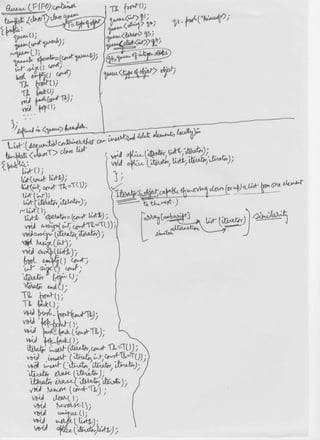 Queue (FIFO) container
template <class T> class queue
{ public:
queue();
queue(const queue&);
~queue();
queue& operator=(const queue&);
int size() const;
bool empty() const;
T& front();
T& back();
void push(const T&);
void pop();
};
defined in <queue> header.
T& front();
queue<int> q1;
queue<string> q2;
queue<
queue<type of object> object;
List (sequential container that can insert and delete elements, locally) in
template <class T> class list
{ public:
list();
list(const list&);
list(int, const T& =T());
list(int);
list(iterator, iterator);
~list();
list& operator=(const list&);
void assign(int, const T& =T());
void assign(iterator, iterator);
void resize(int);
void swap(list&);
bool empty() const;
int size() const;
iterator begin();
iterator end();
T& front();
T& back();
void push_front(const T&);
void pop_front();
void push_back(const T&);
void pop_back();
iterator insert(iterator, const T& =T());
void insert(iterator, int, const T& =T());
void insert(iterator, iterator, iterator);
iterator erase(iterator);
iterator erase(iterator, iterator);
void remove(const T&);
void clear();
void reverse();
void unique();
void merge(list&);
void splice(iterator, list&);
void splice(iterator, list&, iterator);
void splice(iterator, list&, iterator, iterator);
};
Iterator is object capable of moving down (or up) a list from one element
to the next.
list (iterator)
similarity